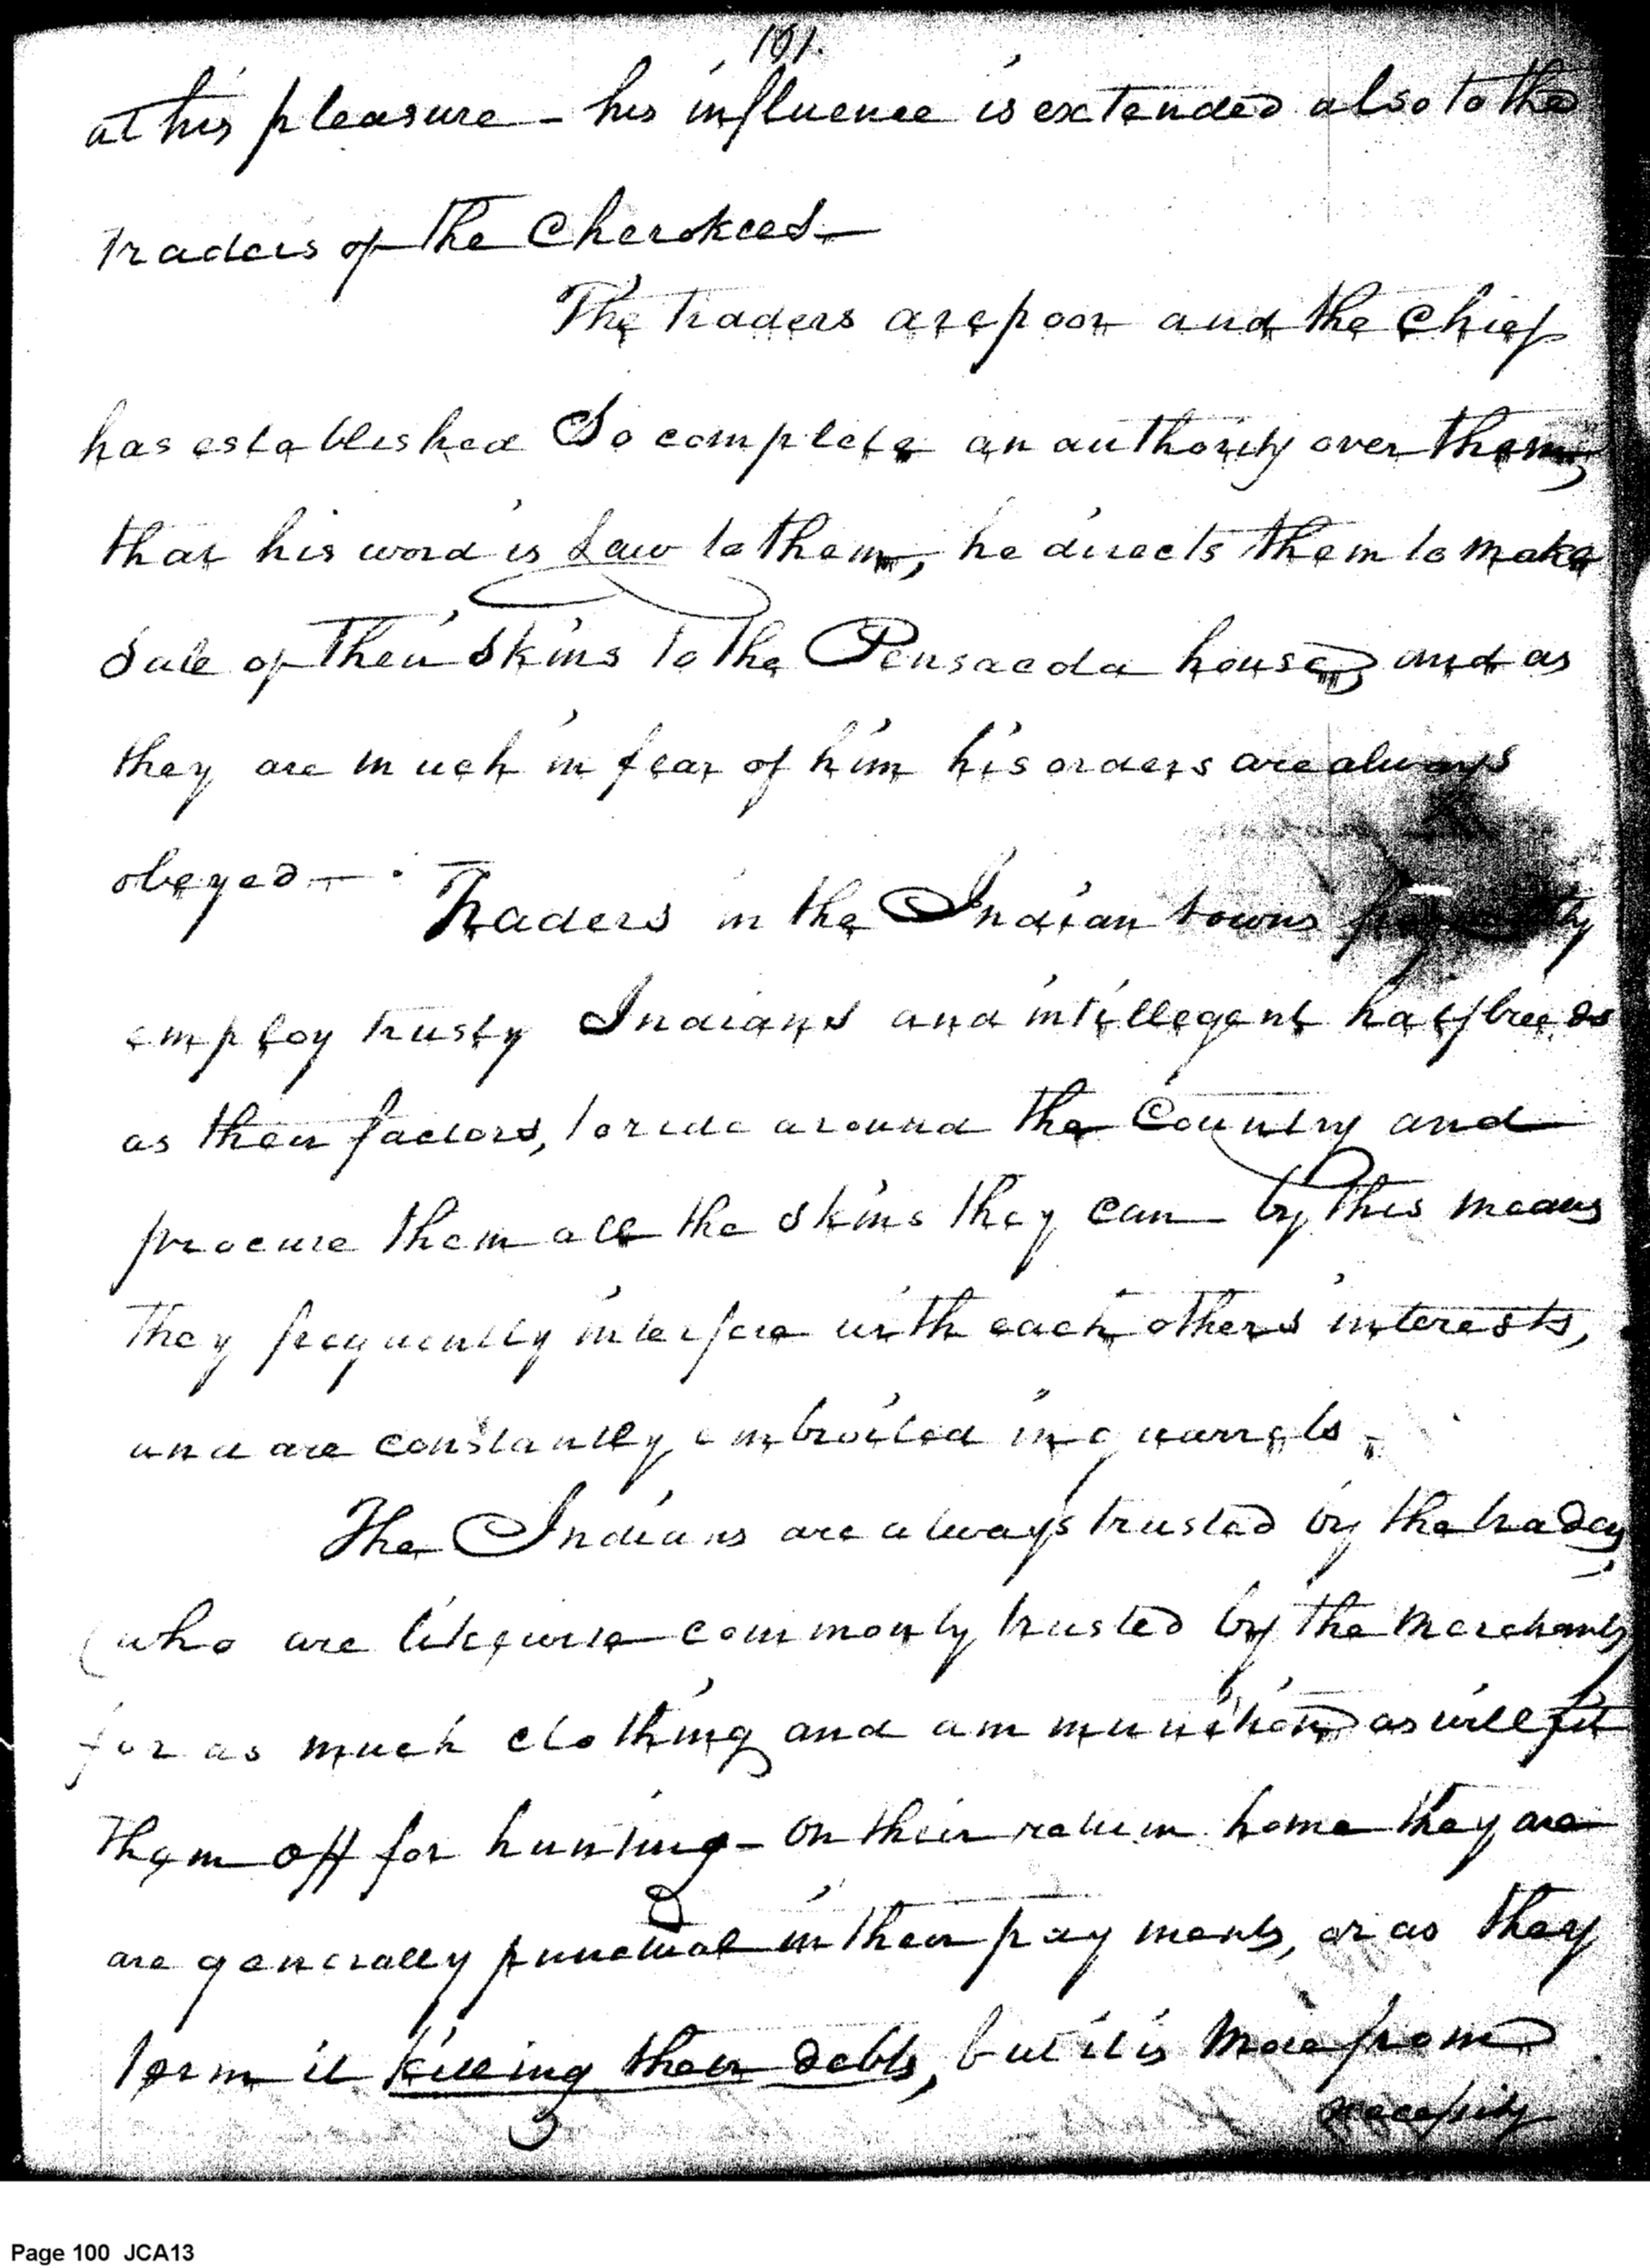 101.
at his pleasure - his influence is extended also to the
traders of the Cherokees -
The Traders are poor and the Chief
has established So complete an authority over them,
that his word is Law to them, he directs them to make
Sale of their Skins to the Pensacola house, and as
they are much in fear of him his orders are always
obeyed - .
Traders in the Indian towns frequently
employ trusty Indians and intillegent halfbreeds
as their factors, to ride around the Country and
procure them all the skins they can - by this means
They frequently interfere with each others interests,
and are constantly embroiled in quarrels -
The Indians are always trusted by the traders,
(who are likewise commonly trusted by the Merchants)
for as much clothing and ammunition as will fit
them off for hunting - on their return home they are
are generally punctual in their payments, or as they
term it killing their debts, but it is More from
necessity
Page 100 JCA13